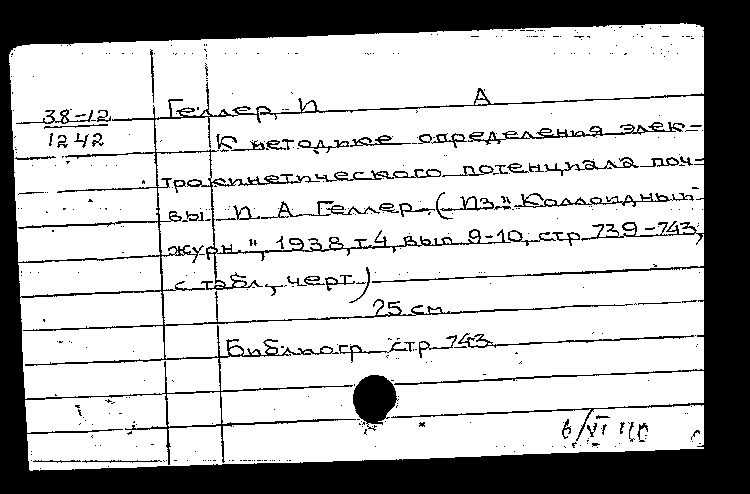 38-12
1242
Геллер, И А
К методике определения элек-
трокинетического потенциала поч-
вы И А Геллер. (Из "Коллоидный
журн.", 1938, т.4, вып 9-10, стр 739-743,
с табл., черт.)
25 см
Библиогр стр 743.
6/VI